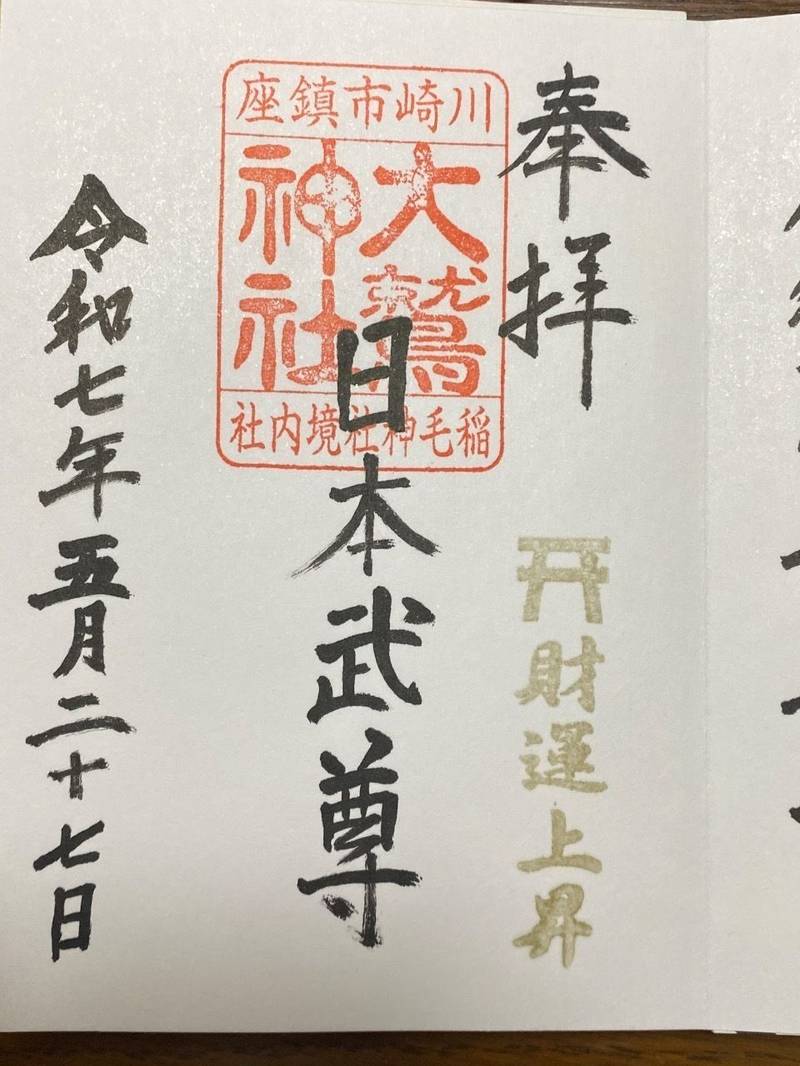 奉拝
財運上昇
川崎市鎮座
大鷲
神社
稲毛神社境内社
日本武尊
令和七年五月二十七日